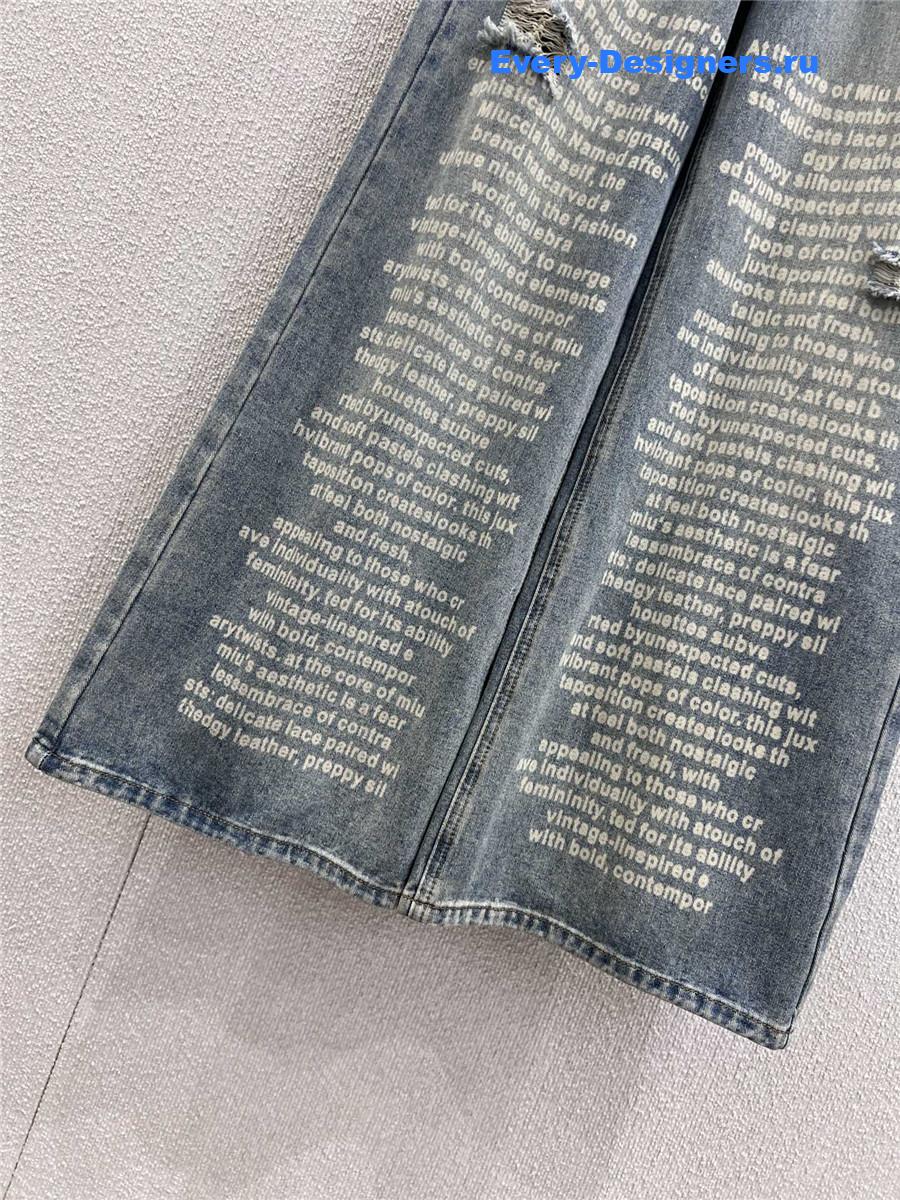 Every-Designers.ru
ger sister by
launched in the
more
spirit whil
label's signatur
phistication. Named after
Miuccia herself, the
brand hascarved a
unique niche in the fashion
world,celebra
ted for its ability to merge
vintage-linspired elements
with bold, contempor
arytwists. at the core of miu
miu's aesthetic is a fear
lessembrace of contra
sts; delicate lace paired wi
thedgy leather, preppy sil
houettes subve
rted byunexpected cuts,
and soft pastels clashing wit
hvibrant pops of color. this jux
taposition createslooks th
atfeel both nostalgic
and fresh,
appealing to those who cr
ave individuality with atouch of
femininity. ted for its ability
vintage-linspired e
with bold, contempor
arytwists. at the core of miu
miu's aesthetic is a fear
lessembrace of contra
sts; delicate lace paired wi
thedgy leather, preppy sil
At the core of Miu
is a fearlessembra
sts; delicate lace p
dgy leathe
preppy silhouettes
ed byunexpected cuts
pastels clashing with
tpops of co
juxtaposition
ateslooks that feel
talgic and fresh,
appealing to those who
ave individuality with atou
of femininity.at feel b
taposition createslooks th
rted byunexpected cuts,
and soft pastels clashing wit
hvibrant pops of color. this jux
taposition createslooks th
at feel both nostalgic
miu's aesthetic is a fear
lessembrace of contra
sts; delicate lace paired wi
thedgy leather, preppy sil
houettes subve
rted byunexpected cuts,
and soft pastels clashing wit
vibrant pops of color. this jux
taposition createslooks th
at feel both nostalgic
and fresh, with
appealing to those who cr
ave individuality with atouch of
femininity. ted for its ability
vintage-linspired e
with bold, contempor